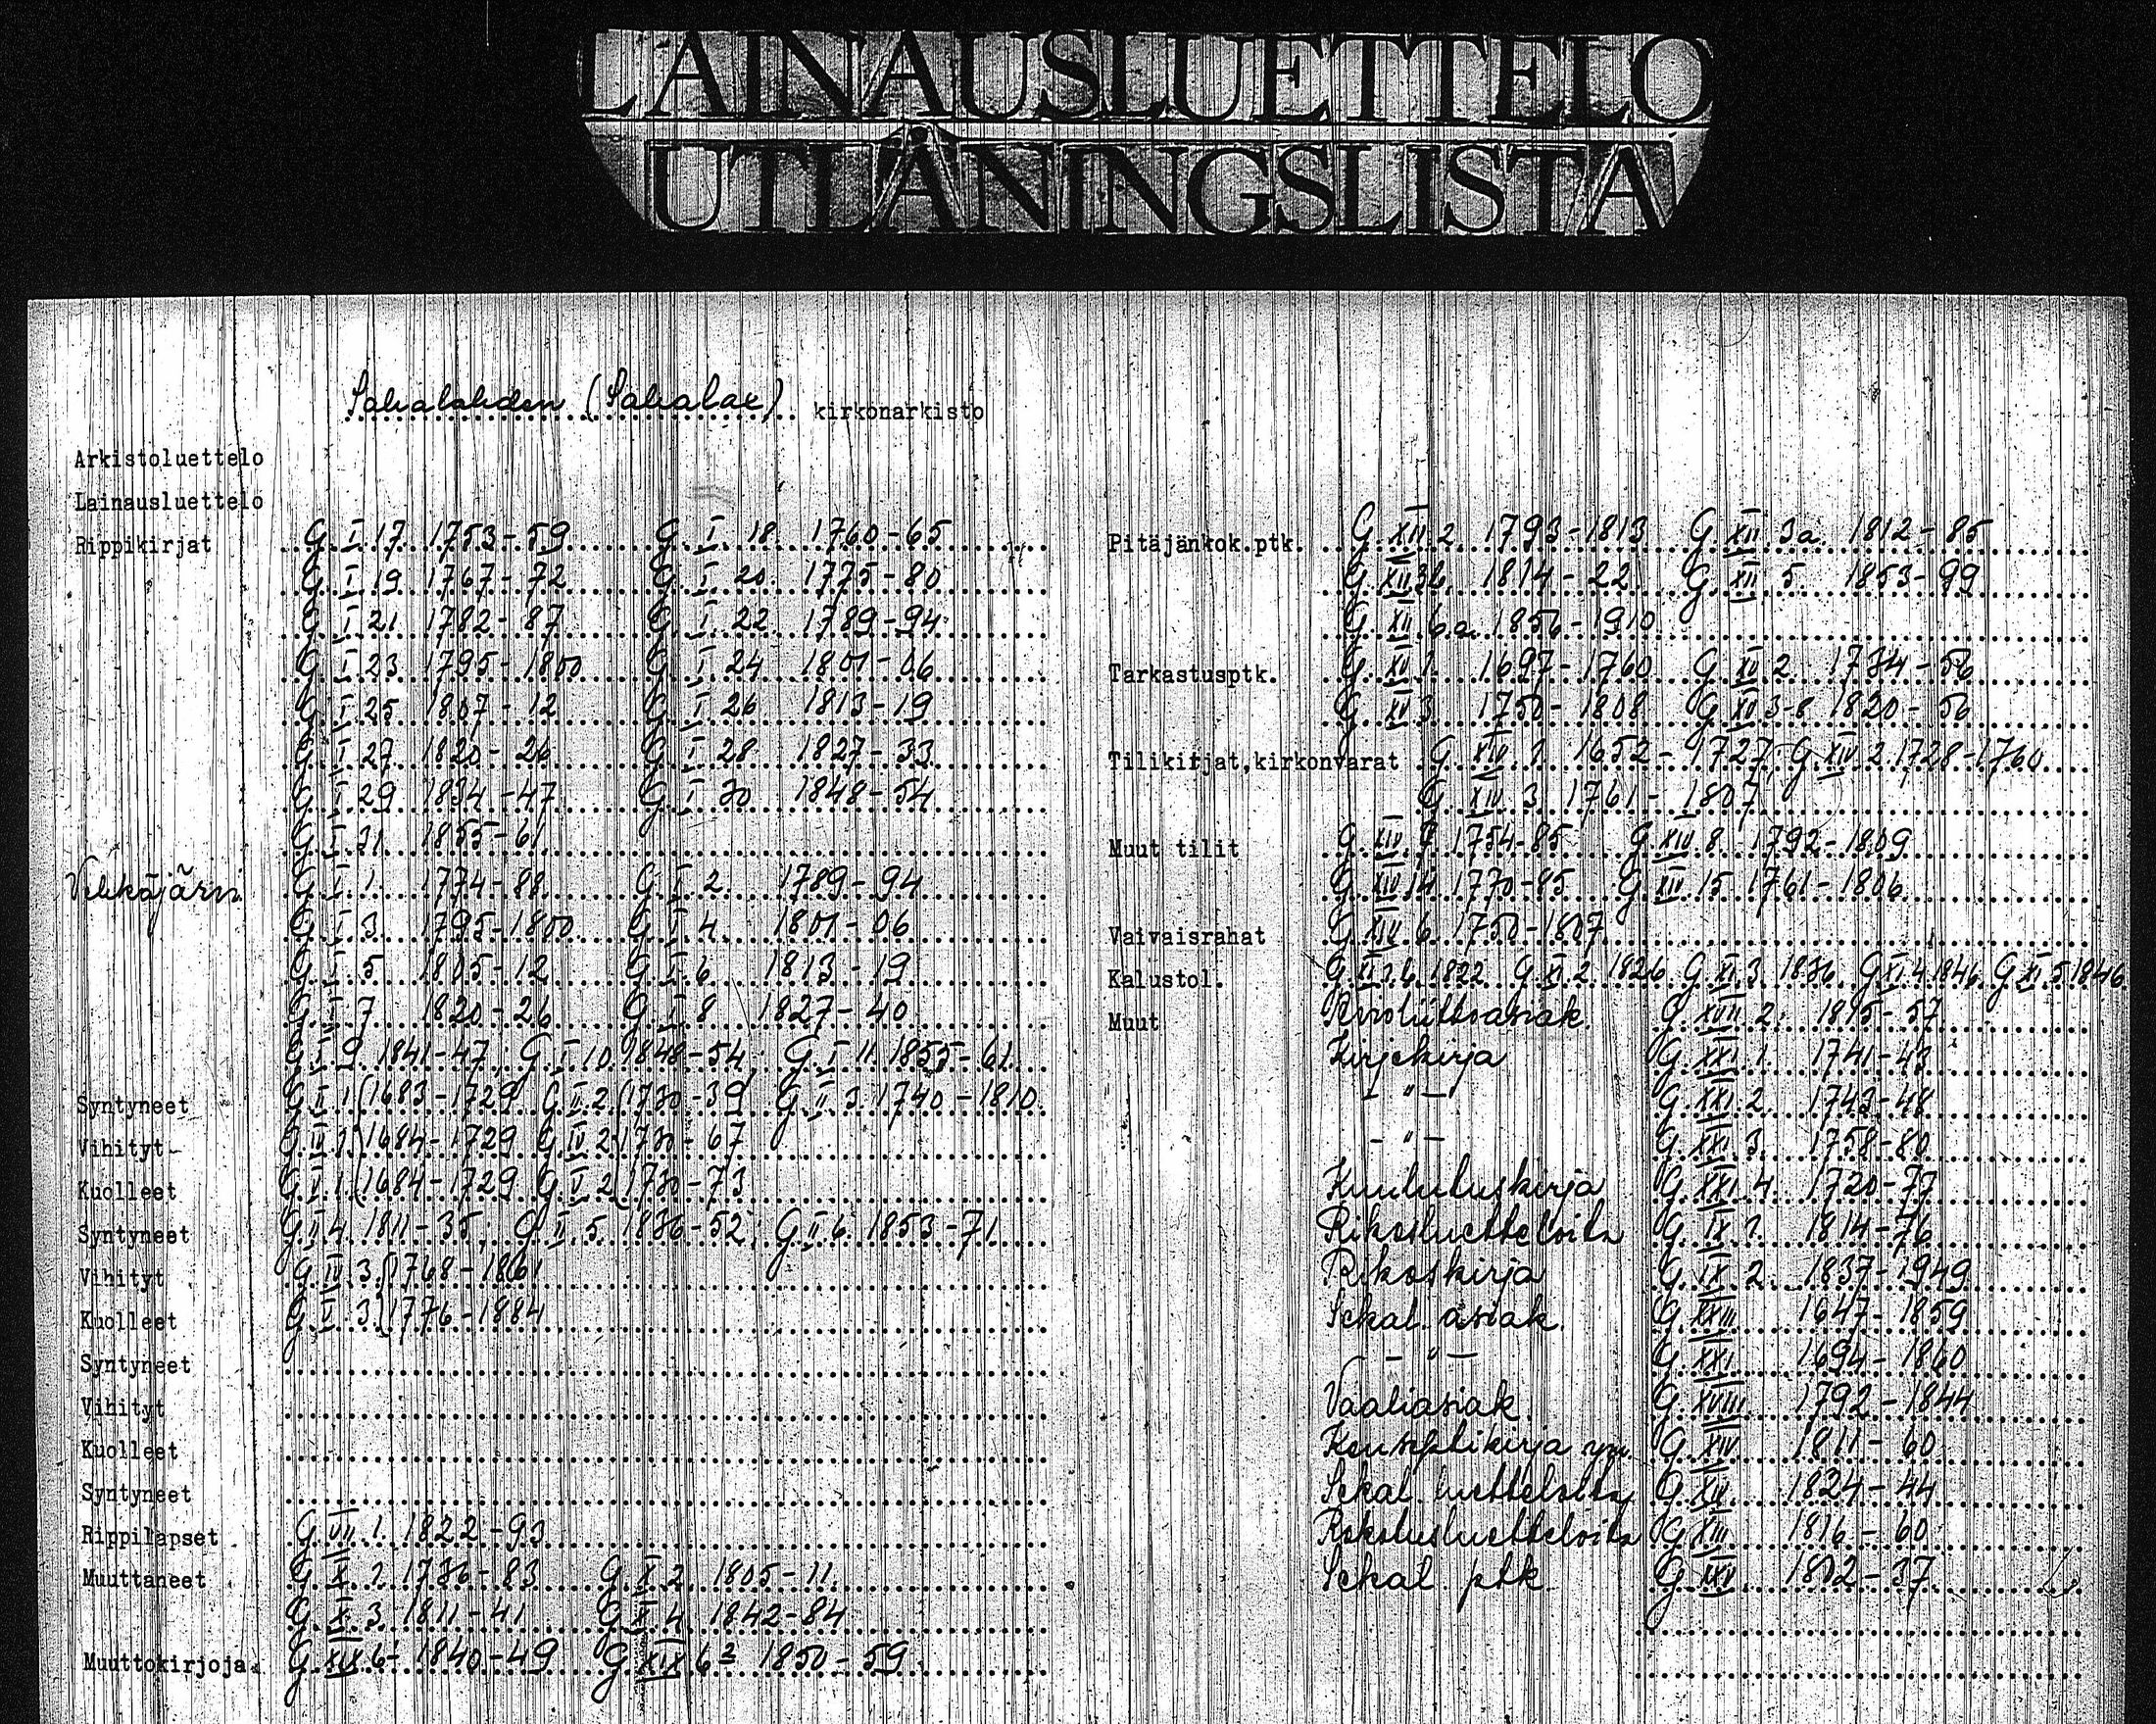 LAINAUSLUETTELO
UTLÅNINGSLISTA
Sahalahden (Sahalax) kirkonarkisto
Arkistoluettelo
Lainausluettelo
Rippikirjat G I 17 1753-59 G I 18 1760-65
G I 19 1767-72 G I 20. 1775-80
G I 21 1782-87 G I 22 1789-94
G I 23 1795-1800 G I 24 1801-06
G I 25 1807-12 G I 26 1813-19
G I 27 1820-26 G I 28 1827-33
G I 29 1834-47 G I 30 1848-54
G I 31 1855-61
G I 1. 1774-88 G I 2. 1789-94
G I 3. 1795-1800 G I 4. 1801-06
G I 5 1805-12 G I 6 1813-19
G I 7 1820-26 G I 8 1827-40
G I 9 1841-47; G I 10 1848-54; G I 11 1855-61
Syntyneet G II 1 (1683-1729 G II 2 (1730-39 G II 3 1740-1810
Vihityt G IV 1 1684-1729 G IV 2 1730-67
Kuolleet G V 1 1684-1729 G V 2 1730-73
Syntyneet G II 4 1811-35; G II 5 1836-52; G II 6 1853-71
Vihityt G IV 3 1768-1861
Kuolleet G V 3 1776-1884
Syntyneet
Vihityt
Kuolleet
Syntyneet
Rippilapset G VII 1. 1822-93
Muuttaneet G X 1 1736-83 G X 2 1805-11
G X 3 1811-41 G X 4 1842-84
Muuttokirjoja G XIX 6 1840-49 G XIX 6 1850-59
Pitäjänkok.ptk. G XII 2 1793-1813 G XII 3a. 1812-85
G XII 3b 1814-22 G XII 5. 1853-99
G XII 6a 1856-1910
Tarkastusptk. G XV 1 1697-1760 G XV 2 1734-56
G XV 3 1750-1808 G XV 3-8 1820-56
Tilikirjat,kirkonvarat G XIV 1 1652-1727, G XIV 2 1728-1760
G XIV 3 1761-1807
Muut tilit G XIV 7 1754-85 G XIV 8 1792-1809
G XIV 14 1770-85 G XIV 15 1761-1806
Vaivaisrahat G XIV 6 1750-1807
Kalustol. G XI 1822 G XI 2 1826 G XI 3 1836 G XI 4 1846 G XI 5 1846
Muut Avioliittoasiak. G XVII 2. 1815-57
Kirjekirja G XXI 1. 1741-43
- " - G XXI 2. 1743-48
- " - G XXI 3. 1758-80
Kuulutuskirja G XXI 4. 1720-77
Rikosluetteloita G IX 1. 1814-76
Rikoskirja G IX 2. 1837-1949
Sekal. asiak. G XXIII 1647-1859
- " - G XXI 1694-1860
Vaaliasiak. G XVIII 1792-1844
Konseptikirja ym. G XIV 1811-60
Sekal. luetteloita G XV 1824-44
Rokotusluetteloita G XIII 1816-60
Sekal ptk. 1802-37